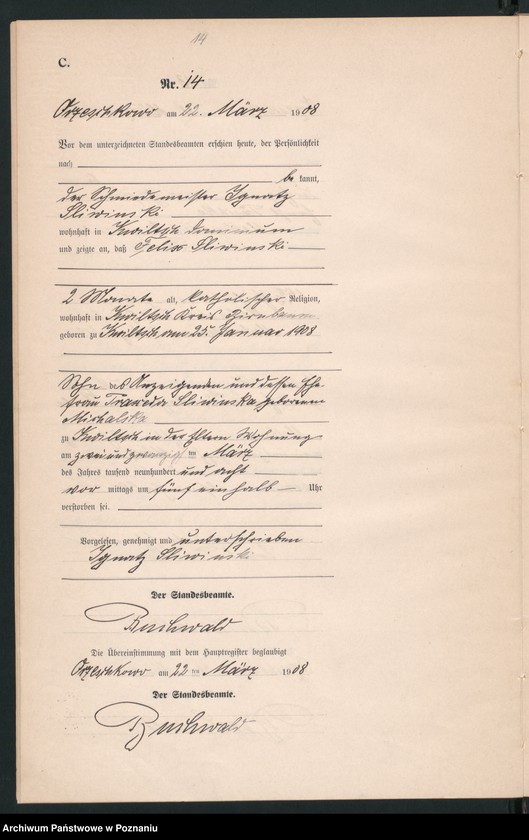 14
C.
Nr. 14
Orzeschkowo am 22. März 1908
Vor dem unterzeichneten Standesbeamten erschien heute, der Persönlichkeit
nach
be kannt,
der Schmiedemeister Ignatz
Sliwinski
wohnhaft in Kwiltsch Dominium
und zeigte an, daß Felix Sliwinski
2 Monate alt, katholischer Religion,
wohnhaft in Kwiltsch Kreis Birnbaum
geboren zu Kwiltsch am 25. Januar 1908
Sohn des Anzeigenden und dessen Ehe-
frau Sliwinska geborenen
Michalska
zu Kwiltsch in der Eltern Wohnung
am zweiundzwanzig ten März
des Jahres tausend neunhundert und acht
vor mittags um fünf einhalb Uhr
verstorben sei.
Vorgelesen, genehmigt und unterschrieben
Ignatz Sliwinski
Der Standesbeamte.
Buchwald
Die Übereinstimmung mit dem Hauptregister beglaubigt
Orzeschkowo am 22 ten März 1908
Der Standesbeamte.
Buchwald
Archiwum Państwowe w Poznaniu